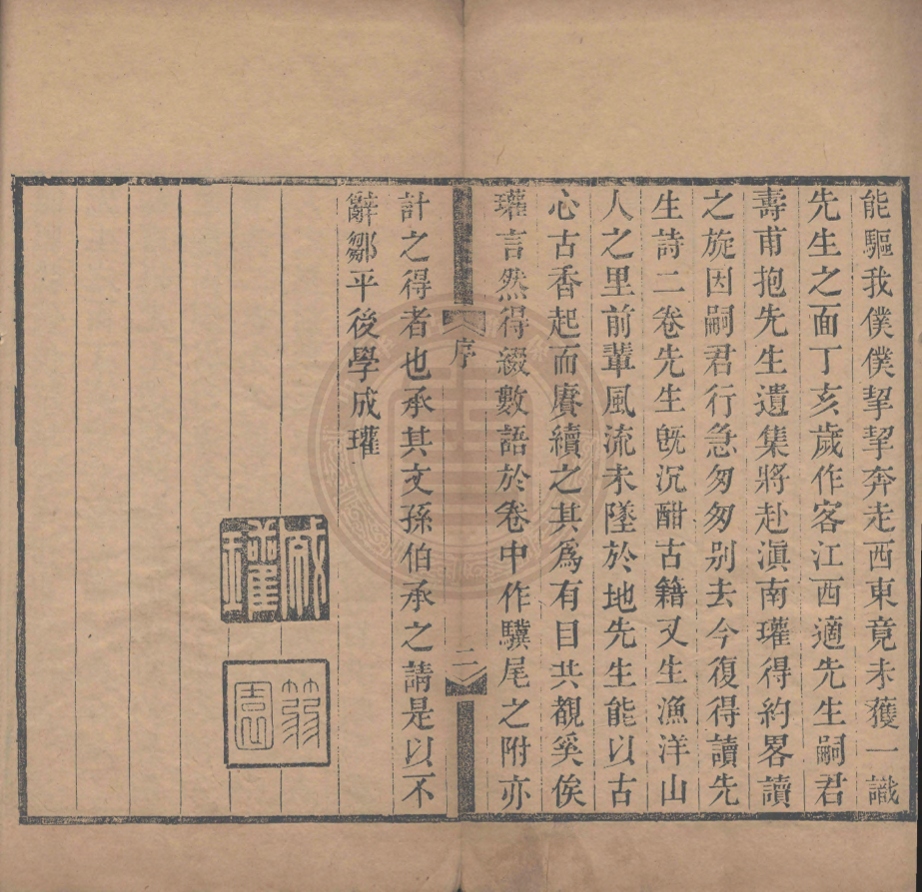 能驅我僕僕挈挈奔走西東竟未獲一識
先生之面丁亥歲作客江西適先生嗣君
壽甫抱先生遺集將赴滇南瓘得約畧讀
之旋因嗣君行急匆匆别去今復得讀先
生詩二卷先生旣沉酣古籍又生漁洋山
人之里前輩風流未墜於地先生能以古
心古香起而賡續之其爲有目共覩奚俟
瓘言然得綴數語於卷中作驥尾之附亦
序
二
計之得者也承其文孫伯承之請是以不
辭鄒平後學成瓘
成瓘
篛園